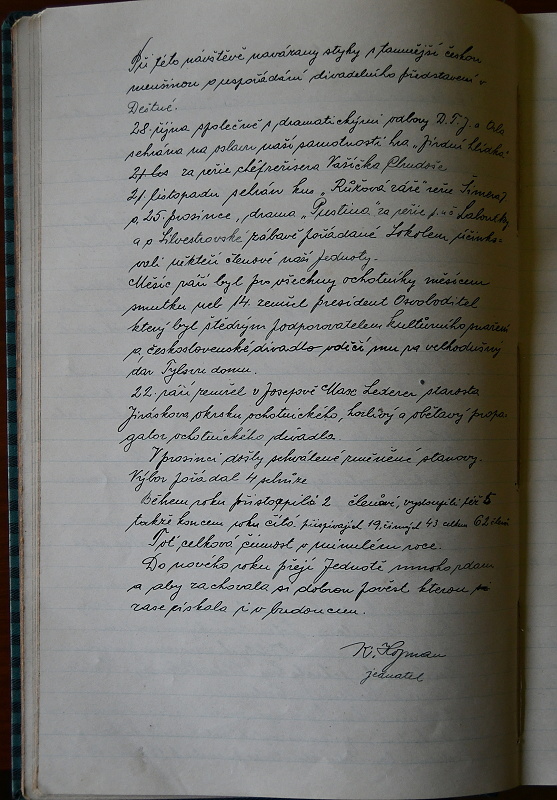 Při této návštěvě navázany styky s tamnější českou
menšinou o uspořádání divadelního představení v
Deštné.
28. října společně s dramatickými odbory D.T.J. a Orla
sehrána na oslavu naší samotnosti hra „Jízdní hlídka"
za režie Vašíčka
21 listopadu sehrán kus „Růžová záře režie
a 25. prosince, drama za režie p. uč
a o Silvestrovské zábavě pořádané Sokolem účinko-
vali někteří členové naší Jednoty.
Měsíc září byl pro všechny ochotníky měsícem
smutku neb 14. zemřel president Osvoboditel
který byl štědrým podporovatelem kulturního snažení
a československé divadlo vděčí mu za velkodušný
dar Tylovu domu.
22. září zemřel v Josefově Max Lederer, starosta
Jiráskova okrsku ochotnického, horlivý a obětavý propa-
gátor ochotnického divadla.
V prosinci došly schválené změněné stanovy.
Výbor pořádal 4 schůze
Během roku přistoupili 2 členové, vystoupili též 5
takže koncem roku čítá přispívajích 19, činných 43 celkem 62 členů
Toť celková činnost v minulém roce.
Do nového roku přeji Jednotě mnoho zdaru
a aby zachovala si dobrou pověst kterou si
zase získala i v budoucnu.
jednatel